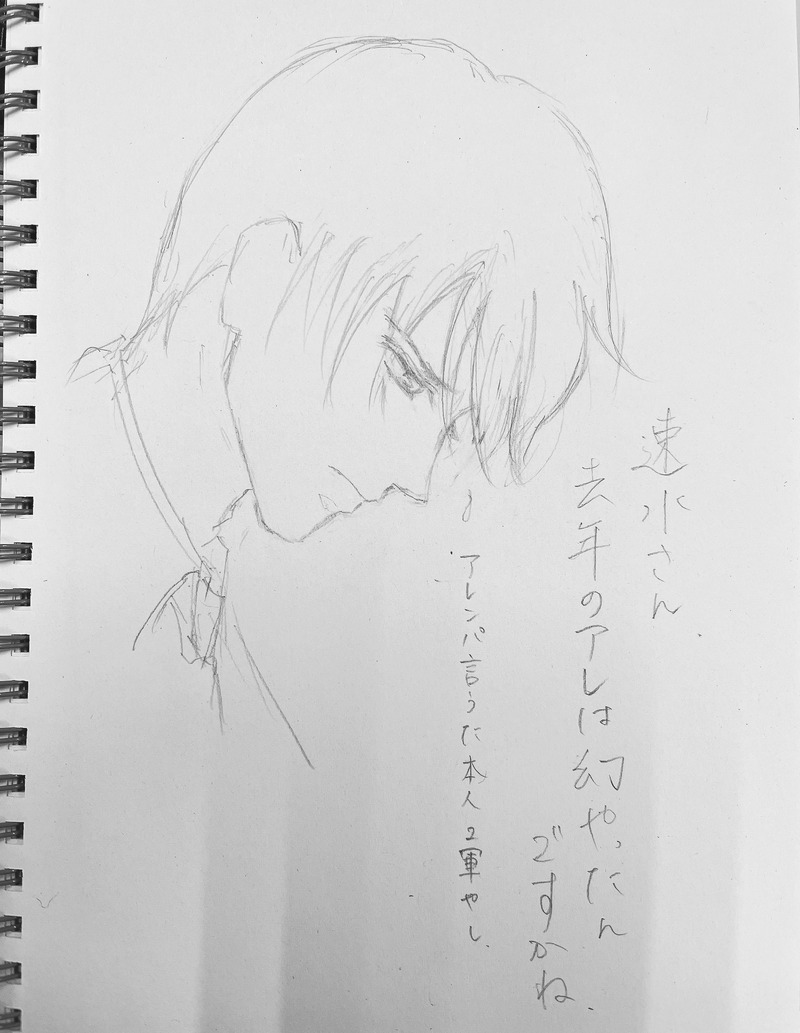 速水さん
去年のアレは幻やったん
ですかね.
アレンパ言うた本人2軍やし.